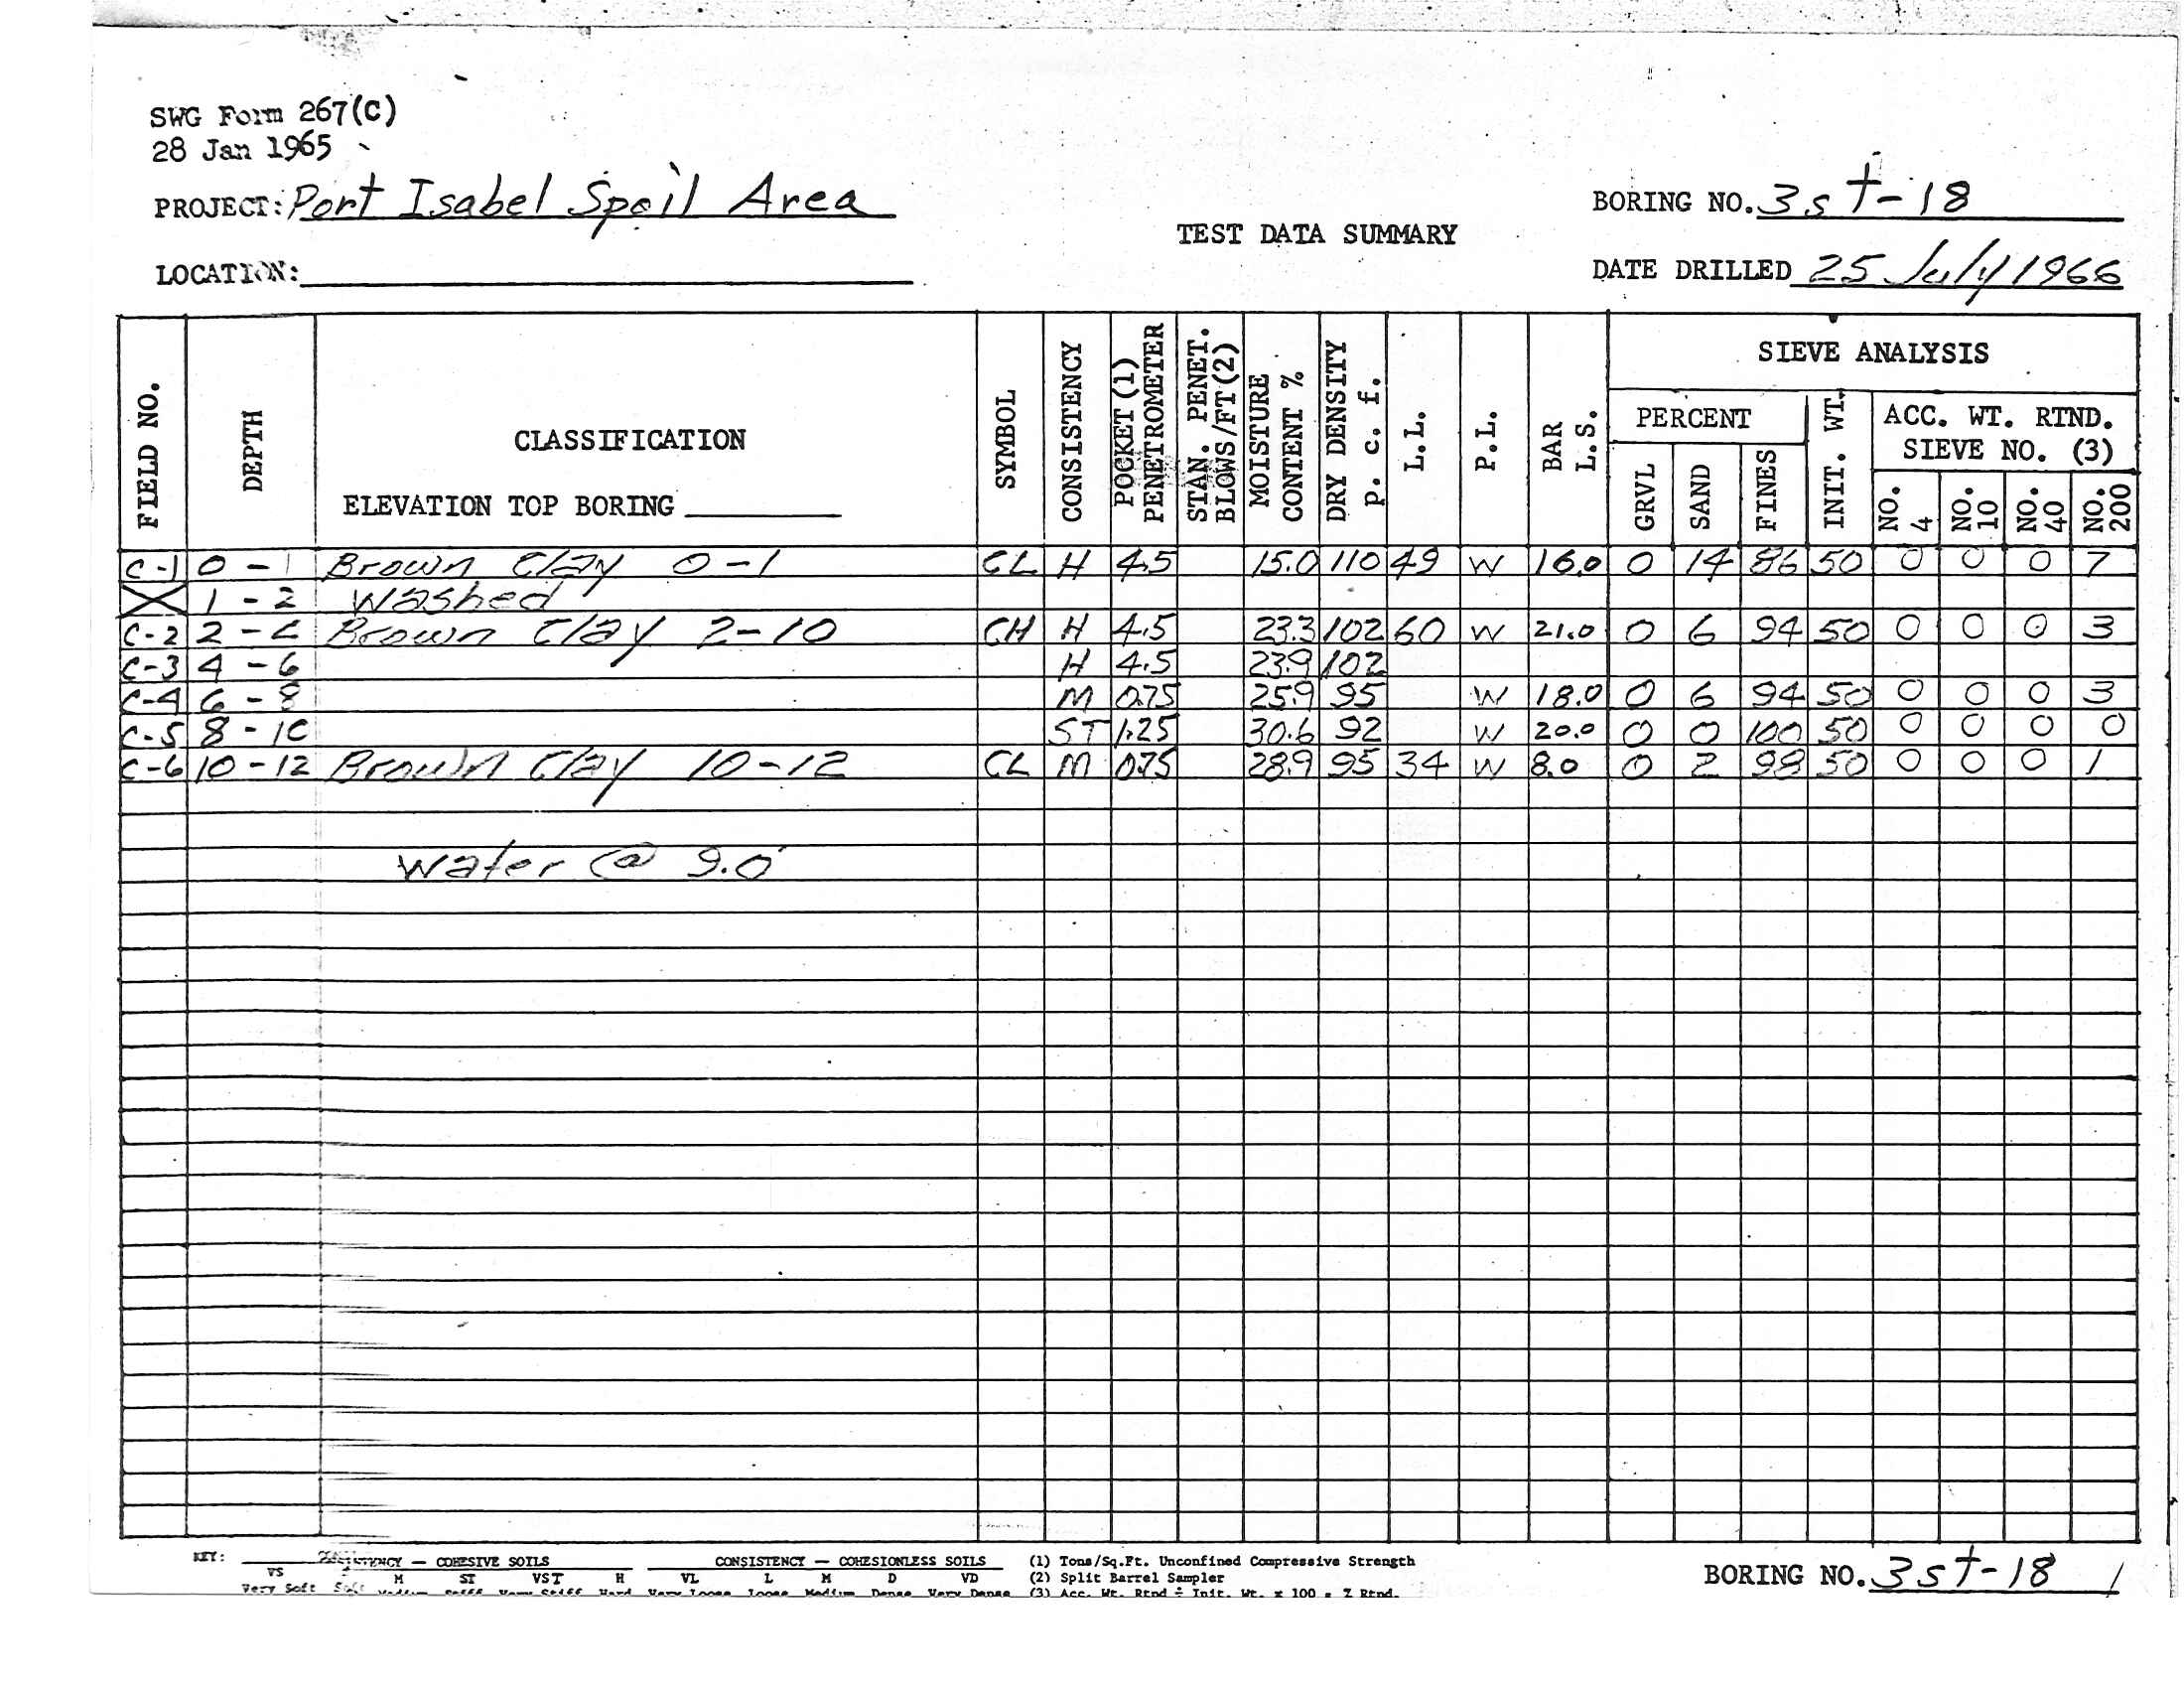 SWG Form 267(C)
28 Jan 1965
PROJECT: Port Isabel Spoil Area
BORING NO. 3st-18
TEST DATA SUMMARY
LOCATION:
DATE DRILLED 25 July 1966
FIELD NO.
DEPTH
CLASSIFICATION
ELEVATION TOP BORING
SYMBOL
CONSISTENCY
POCKET (1) PENETROMETER
STAN. PENET. BLOWS/FT (2)
MOISTURE CONTENT %
DRY DENSITY p. c. f.
L.L.
P.L.
BAR L.S.
SIEVE ANALYSIS
PERCENT
GRVL
SAND
FINES
INIT. WT.
ACC. WT. RTND.
SIEVE NO. (3)
NO. 4
NO. 10
NO. 40
NO. 200
C-1 0 - 1 Brown Clay 0-1 CL H 4.5 15.0 110 49 W 16.0 0 14 86 50 0 0 0 7
1 - 2 Washed
C-2 2 - Brown Clay 2-10 CH H 4.5 23.3 102 60 W 21.0 0 6 94 50 0 0 0 3
C-3 4 - 6 H 4.5 23.9 102
C-4 6 - 8 M 0.75 25.9 95 W 18.0 0 6 94 50 0 0 0 3
C-5 8 - 10 ST 1.25 30.6 92 W 20.0 0 0 100 50 0 0 0 0
C-6 10 - 12 Brown Clay 10-12 CL M 0.75 28.9 95 34 W 8.0 0 2 98 50 0 0 0 1
Water @ 9.0'
KEY: CONSISTENCY — COHESIVE SOILS CONSISTENCY — COHESIONLESS SOILS (1) Tons/Sq.Ft. Unconfined Compressive Strength
VS M ST VST H VL L M D VD (2) Split Barrel Sampler
Very Soft Soft Medium Stiff Very Stiff Hard Very Loose Loose Medium Dense Very Dense (3) Acc. Wt. Rtnd ÷ Init. Wt. x 100 = % Rtnd.
BORING NO. 3st-18